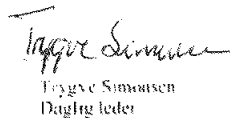 Trygve Simonsen
Trygve Simonsen
Daglig leder